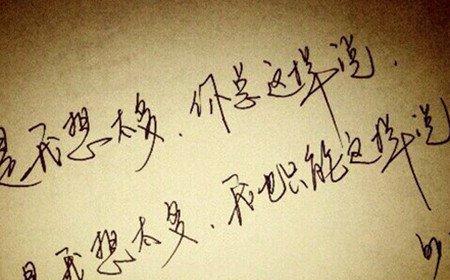 是我想太多，你总这样说.
是我想太多，我也只能这样说